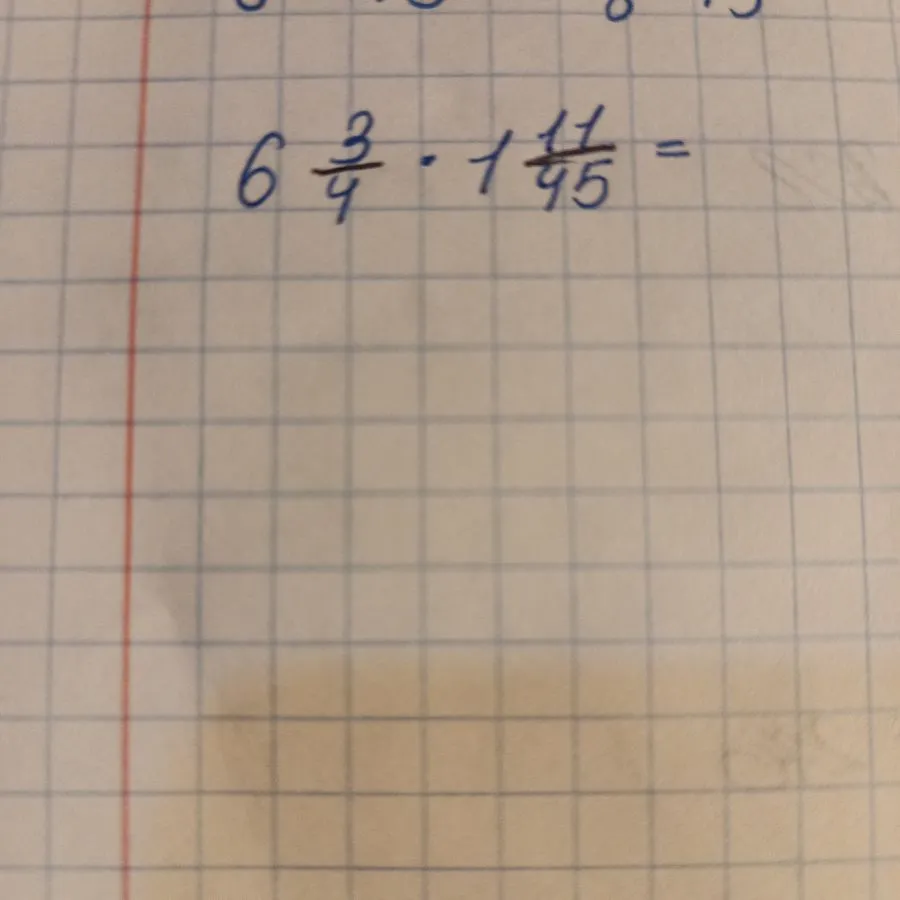 6 3/4 · 1 11/45 =